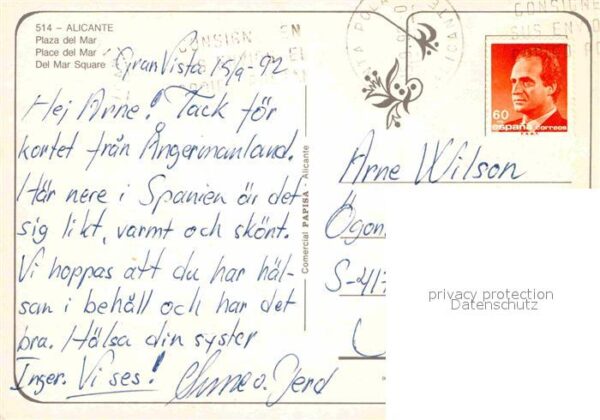 514 – ALICANTE
Plaza del Mar
Place del Mar
Del Mar Square
CONSIGN EN
GranVista 15/9-92
Hej Arne! Tack för
kortet från Ångermanland.
Här nere i Spanien är det
sig likt, varmt och skönt.
Vi hoppas att du har häl-
san i behåll och har det
bra. Hälsa din syster
Inger. Vi ses!
Comercial PAPISA - Alicante
CONSIGNE
SUS ENVIO
60
españa correos
Arne Wilson
Ögon
S-417
privacy protection
Datenschutz